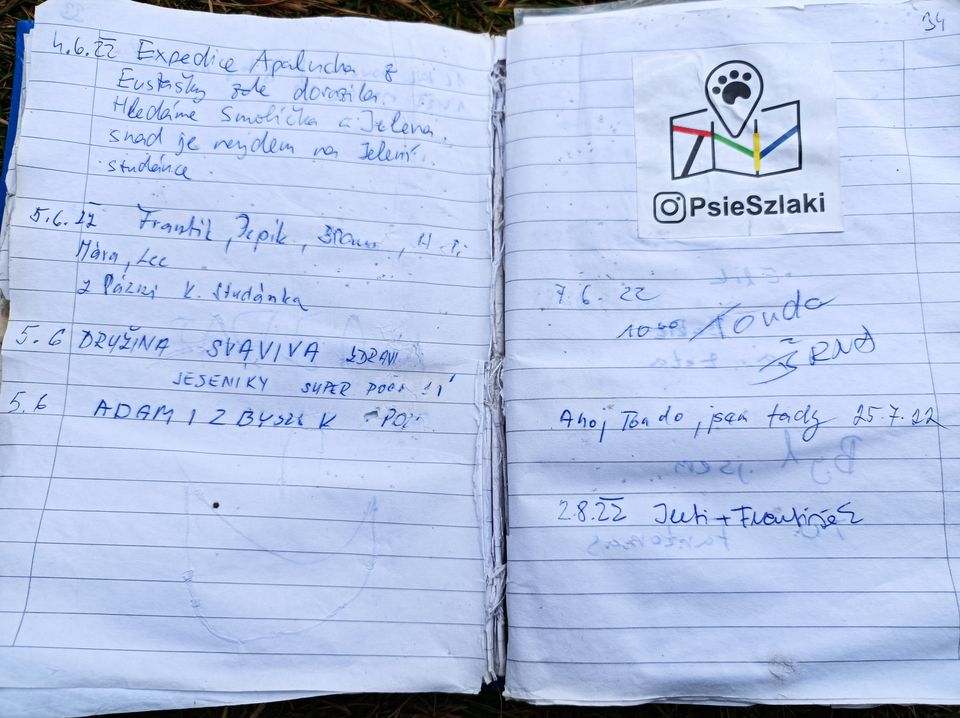 4.6.22 Expedice Apalucha z
Eustašky zde dorazila.
Hledáme Smolíčka a Jelena.
snad je najdem na Jelení
studánce
5.6.22 Frantík, Pepik, H.P.
Mára, Lee
z k. Studánka
5.6 DRUŽINA SVAVIVA ZDRAVI
JESENIKY SUPER
5.6 ADAM I ZBYSEK
34
PsieSzlaki
7.6.22
Tonda
Ahoj Tondo, jsem tady 25.7.22
2.8.22 + František